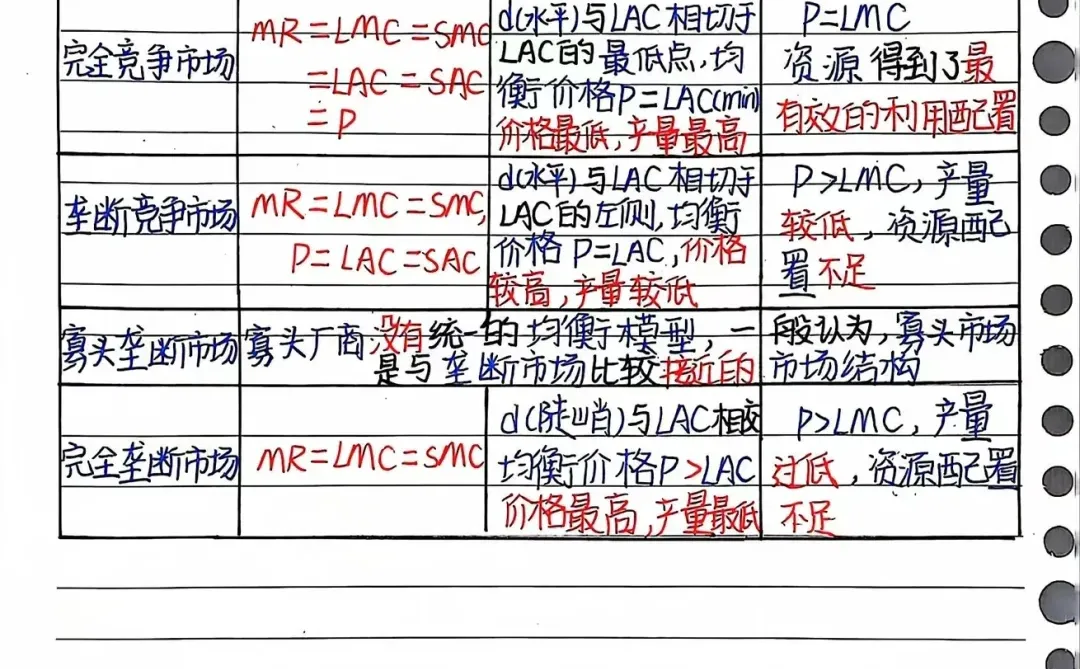 完全竞争市场
MR=LMC=SMC
=LAC=SAC
=P
d(水平)与LAC相切于
LAC的最低点,均
衡价格P=LAC(min)
价格最低,产量最高
P=LMC
资源得到了最
有效的利用配置
垄断竞争市场
MR=LMC=SMC,
P=LAC=SAC
d(水平)与LAC相切于
LAC的左侧,均衡
价格P=LAC,价格
较高,产量较低
P>LMC,产量
较低,资源配
置不足
寡头垄断市场
寡头厂商没有统一的均衡模型,一般认为,寡头市场
是与垄断市场比较接近的市场结构
完全垄断市场
MR=LMC=SMC
d(陡峭)与LAC相交
均衡价格P>LAC
价格最高,产量最低
P>LMC,产量
过低,资源配置
不足